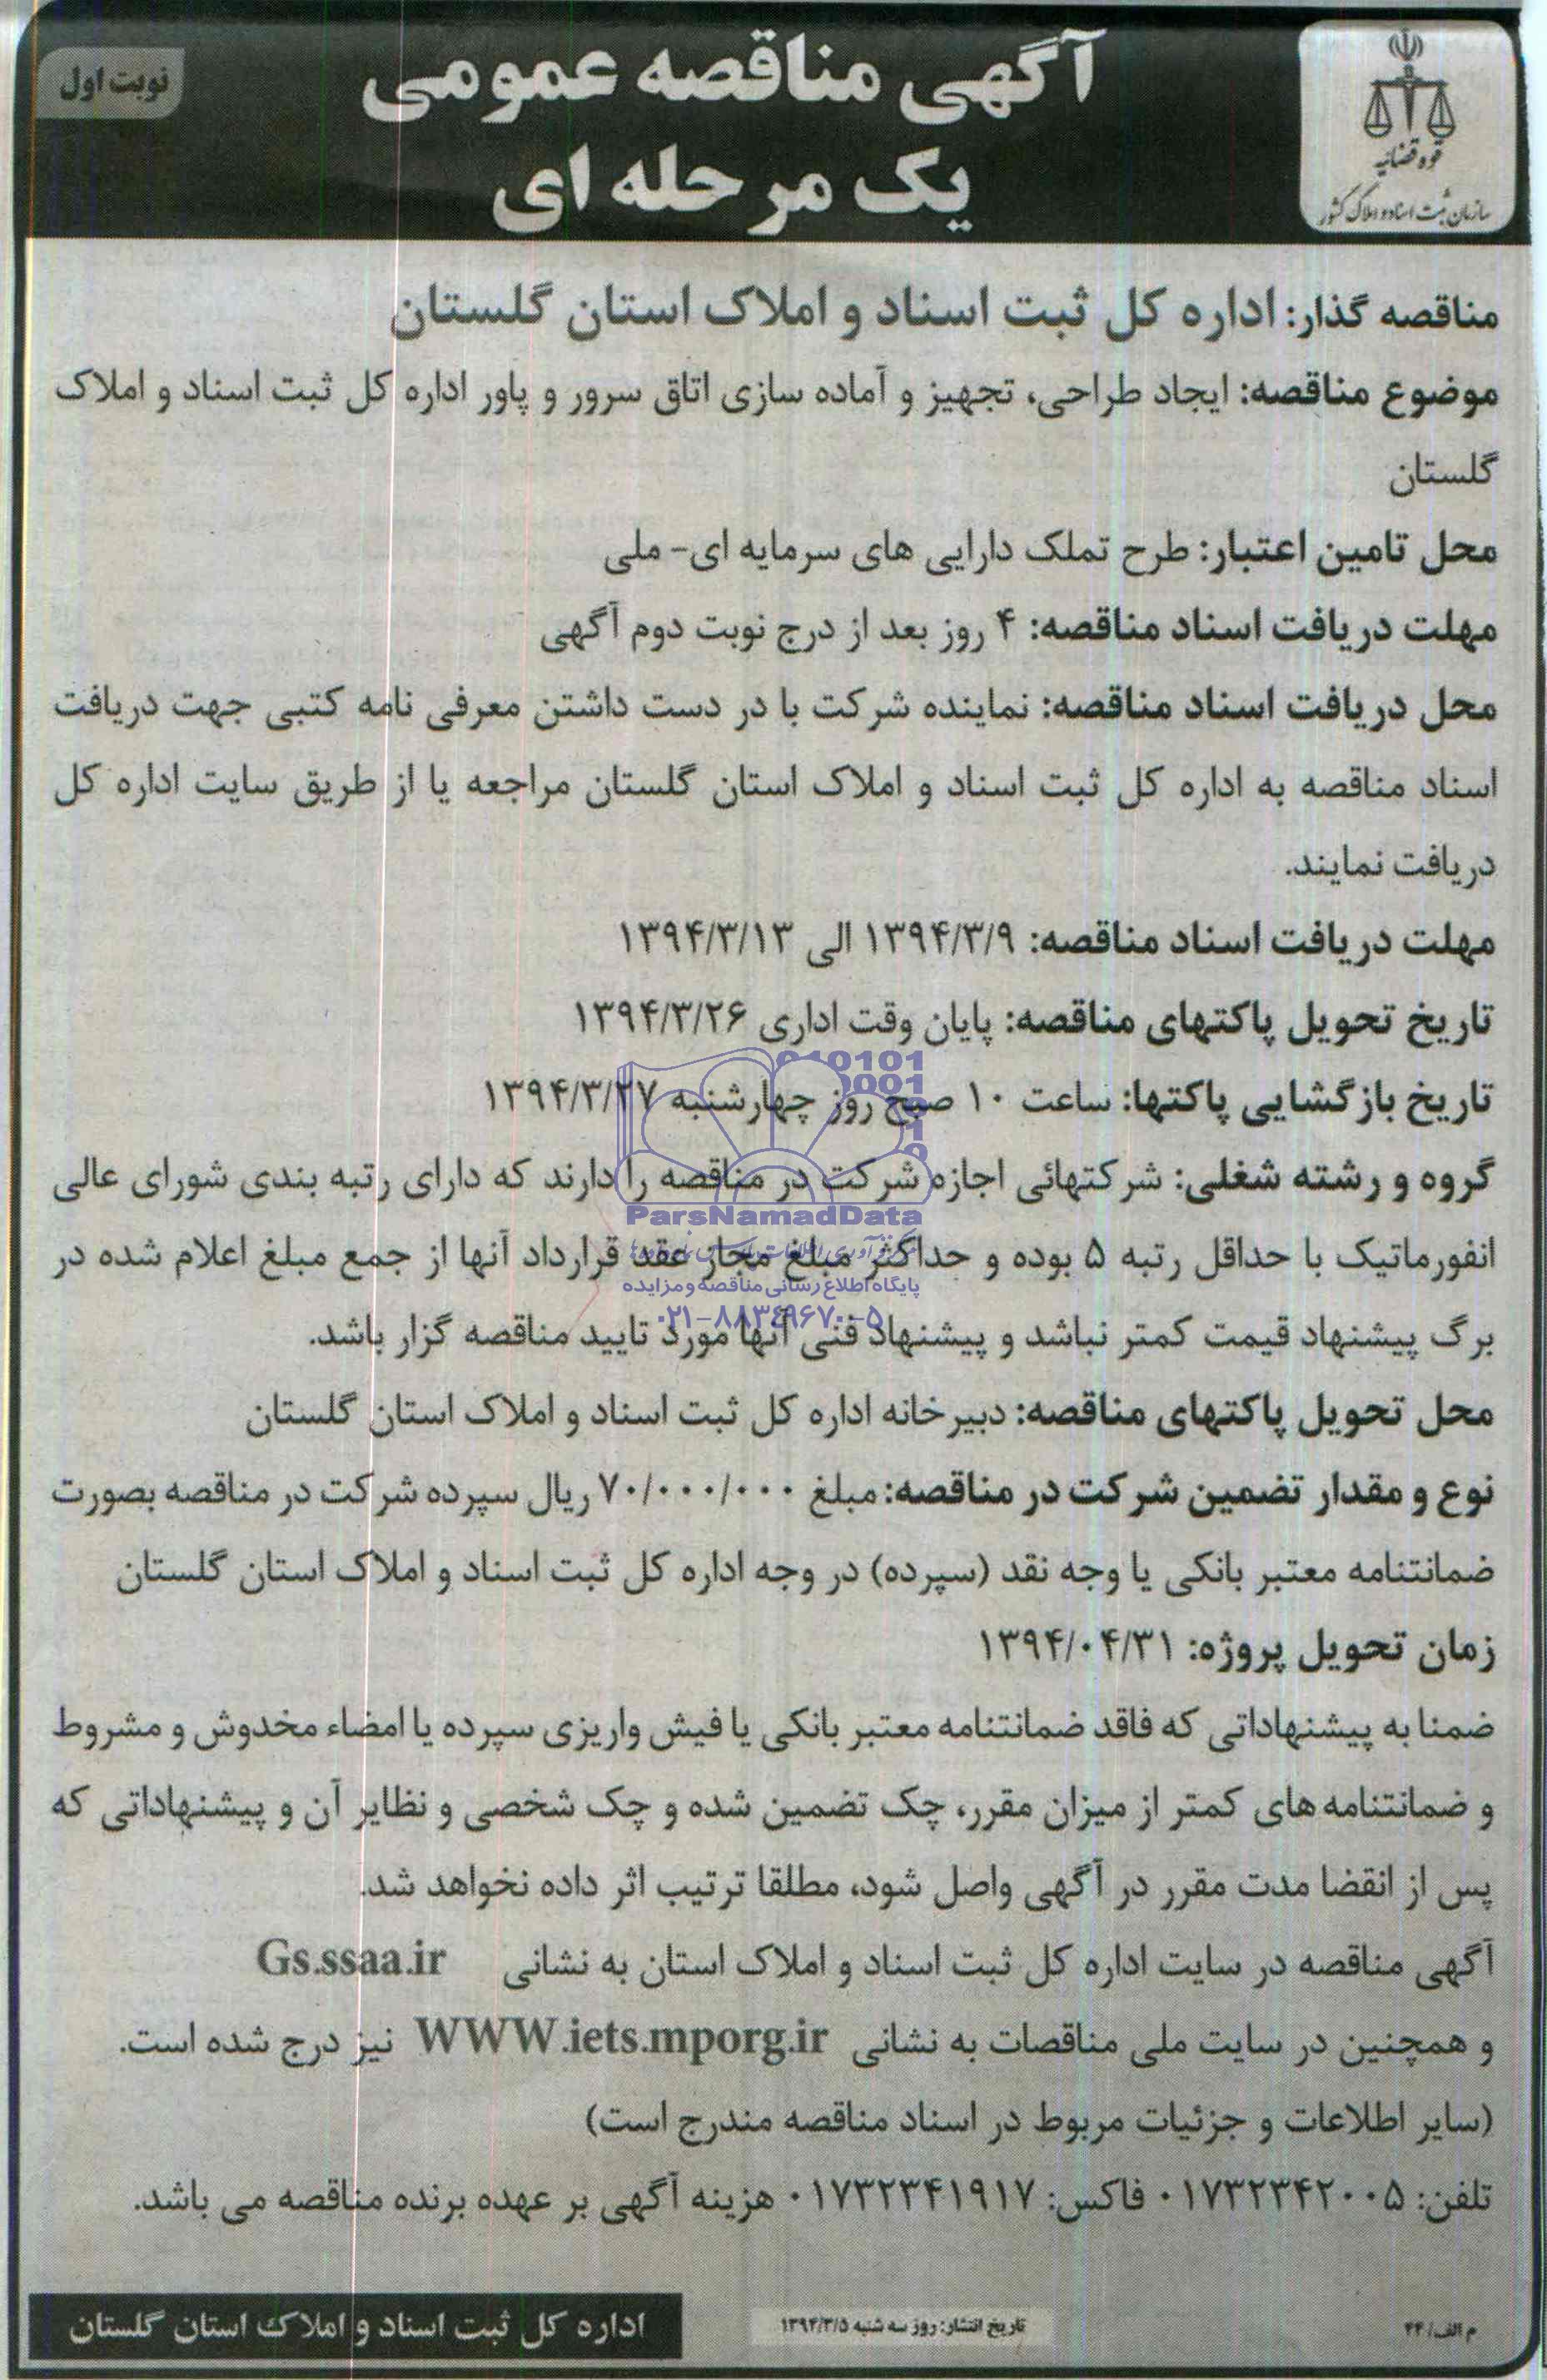 قوه قضائیه
سازمان ثبت اسناد و املاک کشور
آگهی مناقصه عمومی
یک مرحله ای
نوبت اول
مناقصه گذار: اداره کل ثبت اسناد و املاک استان گلستان
موضوع مناقصه: ایجاد طراحی، تجهیز و آماده سازی اتاق سرور و پاور اداره کل ثبت اسناد و املاک
گلستان
محل تامین اعتبار: طرح تملک دارایی های سرمایه ای- ملی
مهلت دریافت اسناد مناقصه: ۴ روز بعد از درج نوبت دوم آگهی
محل دریافت اسناد مناقصه: نماینده شرکت با در دست داشتن معرفی نامه کتبی جهت دریافت
اسناد مناقصه به اداره کل ثبت اسناد و املاک استان گلستان مراجعه یا از طریق سایت اداره کل
دریافت نمایند.
مهلت دریافت اسناد مناقصه: ۱۳۹۴/۳/۹ الی ۱۳۹۴/۳/۱۳
تاریخ تحویل پاکتهای مناقصه: پایان وقت اداری ۱۳۹۴/۳/۲۶
تاریخ بازگشایی پاکتها: ساعت ۱۰ صبح روز چهارشنبه ۱۳۹۴/۳/۲۷
گروه و رشته شغلی: شرکتهائی اجازه شرکت در مناقصه را دارند که دارای رتبه بندی شورای عالی
ParsNamadData
انفورماتیک با حداقل رتبه ۵ بوده و حداکثر مبلغ مجاز عقد قرارداد آنها از جمع مبلغ اعلام شده در
پایگاه اطلاع رسانی مناقصه و مزایده
۰۲۱-۸۸۳۴۹۶۷۰-۵
برگ پیشنهاد قیمت کمتر نباشد و پیشنهاد فنی آنها مورد تایید مناقصه گزار باشد.
محل تحویل پاکتهای مناقصه: دبیرخانه اداره کل ثبت اسناد و املاک استان گلستان
نوع و مقدار تضمین شرکت در مناقصه: مبلغ ۷۰/۰۰۰/۰۰۰ ریال سپرده شرکت در مناقصه بصورت
ضمانتنامه معتبر بانکی یا وجه نقد (سپرده) در وجه اداره کل ثبت اسناد و املاک استان گلستان
زمان تحویل پروژه: ۱۳۹۴/۰۴/۳۱
ضمنا به پیشنهاداتی که فاقد ضمانتنامه معتبر بانکی یا فیش واریزی سپرده یا امضاء مخدوش و مشروط
و ضمانتنامه های کمتر از میزان مقرر، چک تضمین شده و چک شخصی و نظایر آن و پیشنهاداتی که
پس از انقضا مدت مقرر در آگهی واصل شود، مطلقا ترتیب اثر داده نخواهد شد.
آگهی مناقصه در سایت اداره کل ثبت اسناد و املاک استان به نشانی Gs.ssaa.ir
و همچنین در سایت ملی مناقصات به نشانی WWW.iets.mporg.ir نیز درج شده است.
(سایر اطلاعات و جزئیات مربوط در اسناد مناقصه مندرج است)
تلفن: ۰۱۷۳۲۳۴۲۰۰۵ فاکس: ۰۱۷۳۲۳۴۱۹۱۷ هزینه آگهی بر عهده برنده مناقصه می باشد.
م الف/۴۴
تاریخ انتشار: روز سه شنبه ۱۳۹۴/۳/۵
اداره کل ثبت اسناد و املاک استان گلستان